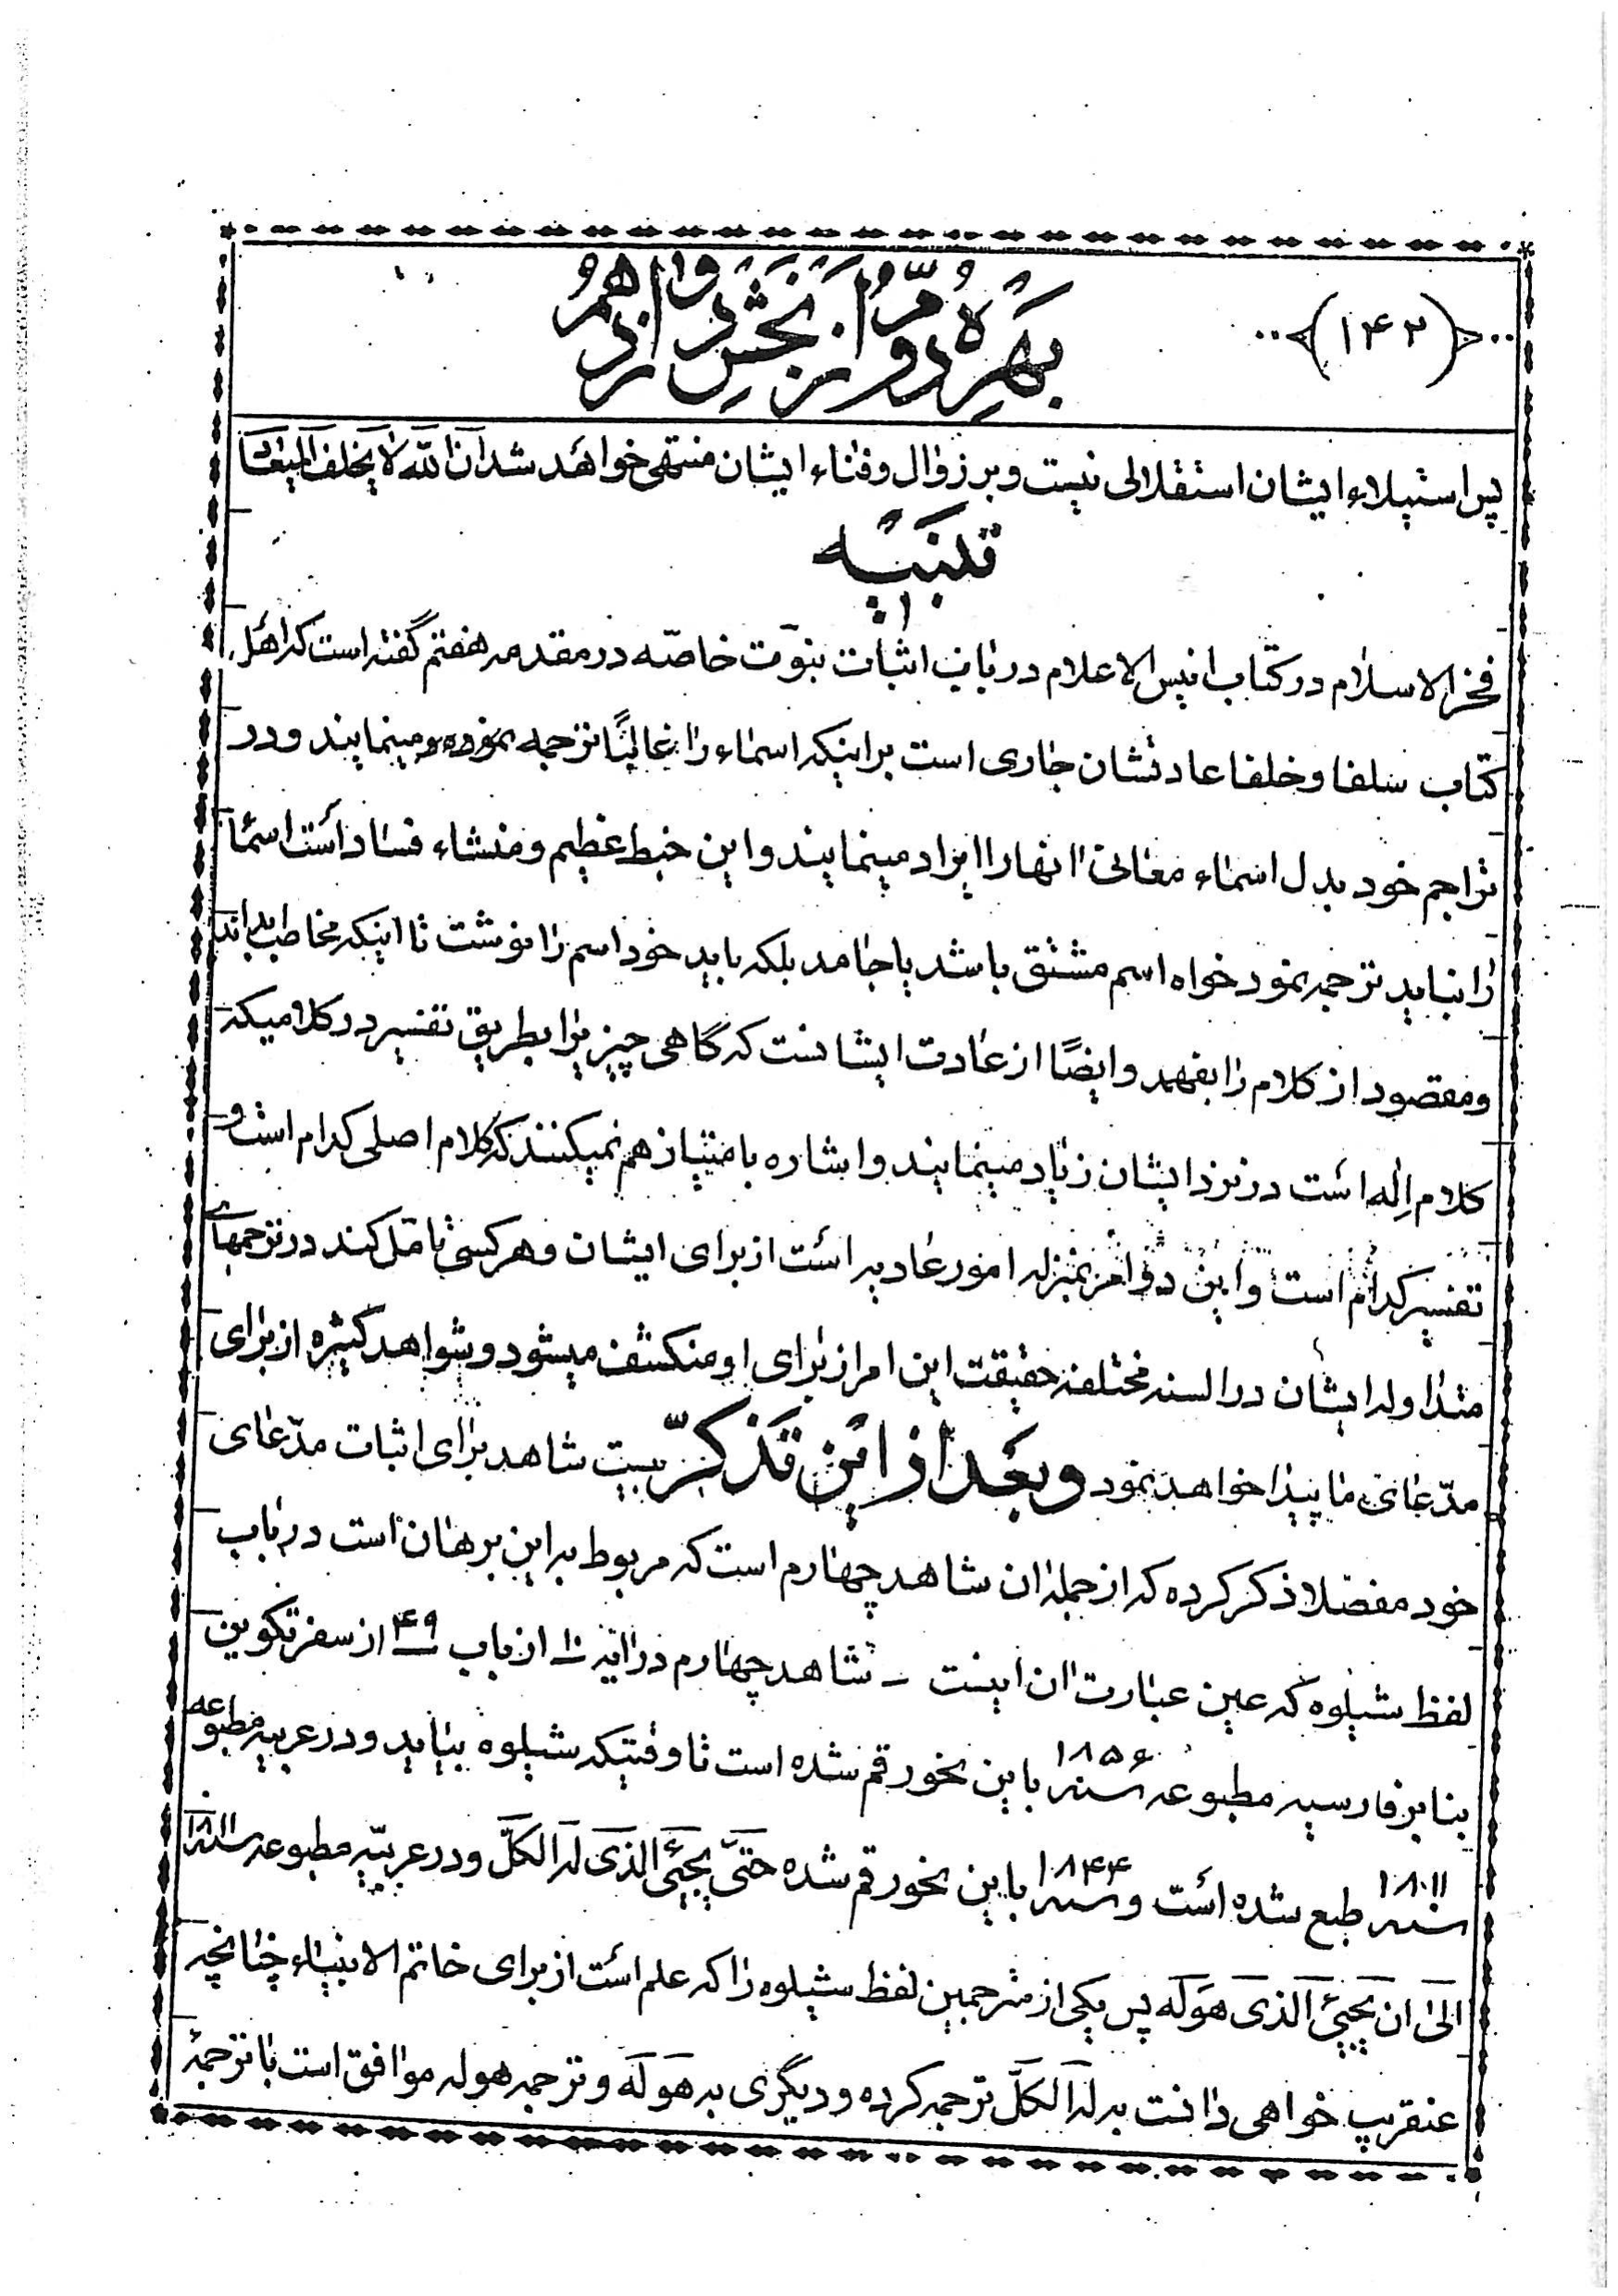 (۱۴۲)
بهره دوم از بخش دوازدهم
پس استیلاء ایشان استقلالی نیست و بر زوال و فناء ایشان منتهی خواهد شد ان الله لا یخلف المیعاد
تنبیه
فخر الاسلام در کتاب انیس الاعلام در باب اثبات نبوّت خاصّه در مقدمه هفتم گفته است که اهل
کتاب سلفا و خلفا عادتشان جاری است بر اینکه اسماء را غالبًا ترجمه نموده و مینمایند و در
تراجم خود بدل اسماء معانی انها را ایراد مینمایند و این خبط عظیم و منشاء فساد است اسما
را نباید ترجمه نمود خواه اسم مشتق باشد یا جامد بلکه باید خود اسم را نوشت تا اینکه مخاطب بداند
و مقصود از کلام را بفهمد و ایضًا از عادت ایشانست که گاهی چیزیرا بطریق تفسیر در کلامیکه
کلام اِله است در نزد ایشان زیاد مینمایند و اشاره بامتیاز هم نمیکنند که کلام اصلی کدام است و
تفسیر کدام است و این دو امر بمنزله امور عادیه است از برای ایشان و هر کسی تامّل کند در ترجمهای
متداوله ایشان در السنه مختلفه حقیقت این امر از برای او منکشف میشود و شواهد کثیره از برای
مدّعای ما پیدا خواهد نمود و بعد از این تذکّر بیست شاهد برای اثبات مدّعای
خود مفصلا ذکر کرده که از جمله ان شاهد چهارم است که مربوط به این برهان است در باب
لفظ شیلوه که عین عبارت ان اینست - شاهد چهارم در ایه ۱۰ از باب ۴۹ از سفر تکوین
بنا بر فارسیه مطبوعه سنه ۱۸۵۶ باین نحو رقم شده است تا وقتیکه شیلوه بیاید و در عربیه مطبوعه
سنه ۱۸۱۱ طبع شده است و سنه ۱۸۴۴ باین نحو رقم شده حتّی یجیئ الذی له الکلّ و در عربیّه مطبوعه سنه ۱۸۱۱
الی ان یجیئ الذی هو له پس یکی از مترجمین لفظ شیلوه را که علم است از برای خاتم الانبیاء چنانچه
عنقریب خواهی دانست به له الکلّ ترجمه کرده و دیگری به هو له و ترجمه هو له موافق است با ترجمهٔ